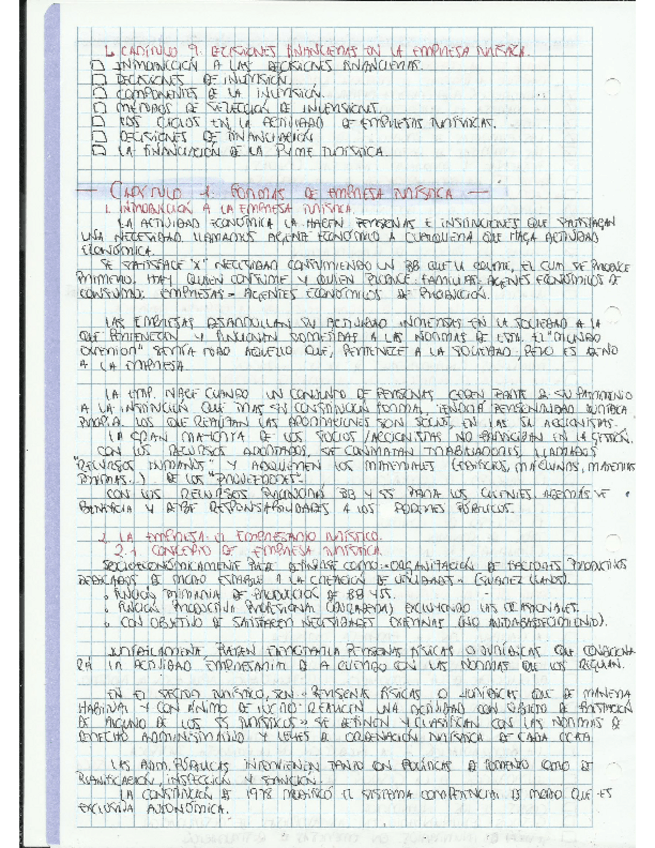 L CAPÍTULO 9: DECISIONES FINANCIERAS EN LA EMPRESA TURÍSTICA.
INTRODUCCIÓN A LAS DECISIONES FINANCIERAS.
DECISIONES DE INVERSIÓN.
COMPONENTES DE LA INVERSIÓN.
MÉTODOS DE SELECCIÓN DE INVERSIONES.
LOS CICLOS EN LA ACTIVIDAD DE EMPRESAS TURÍSTICAS.
DECISIONES DE FINANCIACIÓN
LA FINANCIACIÓN DE LA PYME TURÍSTICA.
— CAPÍTULO 1: FORMAS DE EMPRESA TURÍSTICA —
1. INTRODUCCIÓN A LA EMPRESA TURÍSTICA.
LA ACTIVIDAD ECONÓMICA LA HACEN PERSONAS E INSTITUCIONES QUE SATISFAGAN
UNA NECESIDAD. LLAMAMOS AGENTE ECONÓMICO A CUALQUIERA QUE HAGA ACTIVIDAD
ECONÓMICA.
SE SATISFACE "X" NECESIDAD CONSUMIENDO UN BB QUE LA COLME, EL CUAL SE PRODUCE
PRIMERO. HAY QUIEN CONSUME Y QUIEN PRODUCE. FAMILIAS: AGENES ECONÓMICOS DE
CONSUMO; EMPRESAS = AGENTES ECONÓMICOS DE PRODUCCIÓN.
LAS EMPRESAS DESARROLLAN SU ACTIVIDAD INMERSAS EN LA SOCIEDAD A LA
QUE PERTENECEN Y FUNCIONAN SOMETIDAS A LAS NORMAS DE ESTA. EL "MUNDO
EXTERIOR" SERÍA TODO AQUELLO QUE, PERTENECE A LA SOCIEDAD, PERO ES AJENO
A LA EMPRESA
LA EMP. NACE CUANDO UN CONJUNTO DE PERSONAS CEDEN PARTE DE SU PATRIMONIO
A LA INSTITUCIÓN QUE TRAS SU CONSTITUCIÓN FORMAL, TENDRÁ PERSONALIDAD JURÍDICA
PROPIA. LOS QUE REALIZAN LAS APORTACIONES SON SOCIOS, EN LAS SA ACCIONISTAS.
LA GRAN MAYORÍA DE LOS SOCIOS/ACCIONISTAS NO PARTICIPAN EN LA GESTIÓN.
CON LOS RECURSOS APORTADOS, SE CONTRATAN TRABAJADORES, LLAMADOS
"RECURSOS HUMANOS" Y ADQUIEREN LOS MATERIALES (EDIFICIOS, MÁQUINAS, MATERIAS
PRIMAS...) DE LOS "PROVEEDORES".
CON LOS RECURSOS PRODUCIRÁ BB Y SS PARA LOS CLIENTES. ADEMÁS SE
BENEFICIA Y DEBE RESPONSABILIDADES A LOS PODERES PÚBLICOS.
2. LA EMPRESA Y EMPRESARIO TURÍSTICO.
2.1 CONCEPTO DE EMPRESA TURÍSTICA
SOCIOECONÓMICAMENTE PUEDE DEFINIRSE COMO «ORGANIZACIÓN DE FACTORES PRODUCTIVOS
DEDICADOS DE MODO ESTABLE A LA CREACIÓN DE UTILIDADES» (SUÁREZ LLANOS).
• FUNCIÓN PRIMARIA DE PRODUCCIÓN DE BB Y SS.
• FUNCIÓN PRODUCTIVA PROFESIONAL (DURADERA) EXCLUYENDO LAS OCASIONALES.
• CON OBJETIVO DE SATISFACER NECESIDADES EXTERNAS (NO AUTOABASTECIMIENTO).
JURÍDICAMENTE, PUEDEN PERSONAS FÍSICAS O JURÍDICAS QUE
LA ACTIVIDAD EMPRESARIAL DE ACUERDO CON LAS NORMAS QUE LOS REGULAN.
EN EL SECTOR TURÍSTICO, SON «PERSONAS FÍSICAS O JURÍDICAS QUE DE MANERA
HABITUAL Y CON ÁNIMO DE LUCRO REALICEN UNA ACTIVIDAD CON OBJETO DE PRESTACIÓN
DE ALGUNO DE LOS SS TURÍSTICOS» SE DEFINEN Y CLASIFICAN CON LAS NORMAS DE
DERECHO ADMINISTRATIVO Y LEYES DE ORDENACIÓN TURÍSTICA DE CADA CCAA.
LAS ADM. PÚBLICAS INTERVIENEN TANTO CON POLÍTICAS DE FOMENTO COMO DE
PLANIFICACIÓN, INSPECCIÓN Y SANCIÓN.
LA CONSTITUCIÓN DE 1978 MODIFICÓ EL SISTEMA COMPETENCIAL DE MODO QUE ES
EXCLUSIVA AUTONÓMICA.